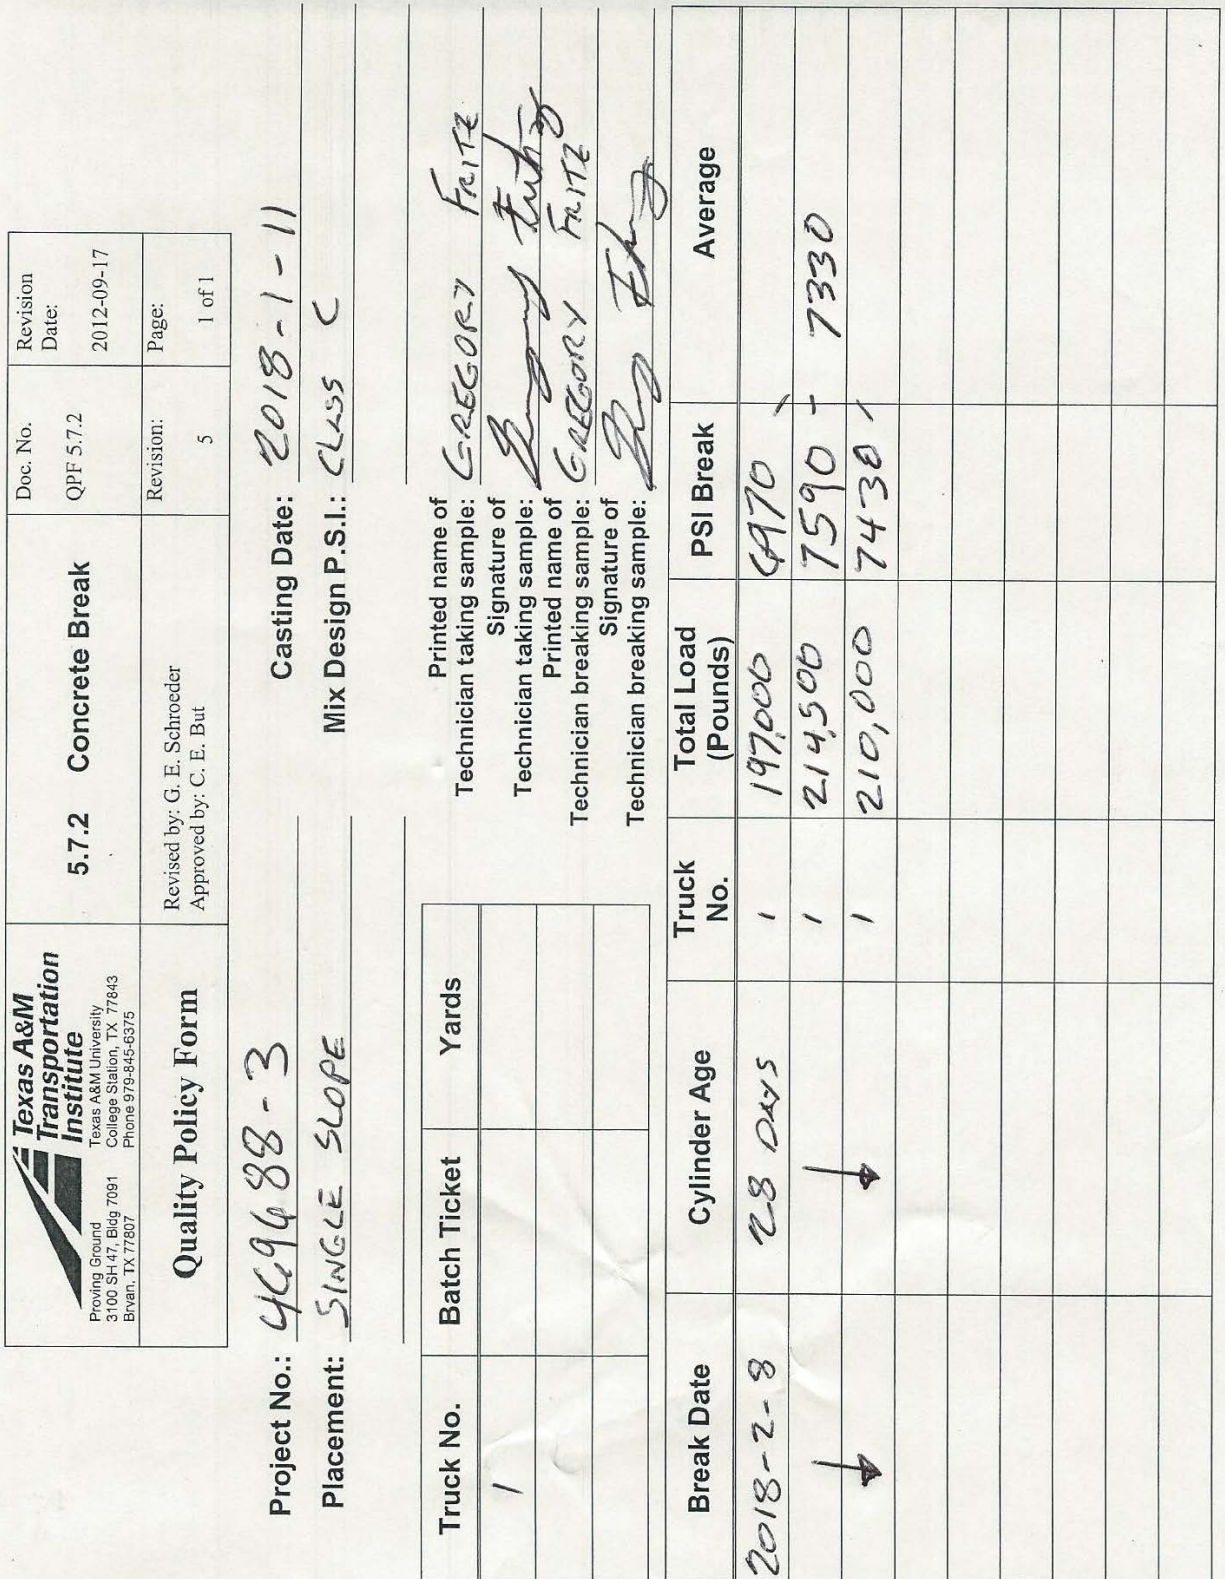 Texas A&M
Transportation
Institute
Proving Ground
3100 SH 47, Bldg 7091
Bryan, TX 77807
Texas A&M University
College Station, TX 77843
Phone 979-845-6375
5.7.2 Concrete Break
Doc. No.
QPF 5.7.2
Revision
Date:
2012-09-17
Quality Policy Form
Revised by: G. E. Schroeder
Approved by: C. E. But
Revision:
5
Page:
1 of 1
Project No.: 469688-3
Casting Date: 2018-1-11
Placement: SINGLE SLOPE
Mix Design P.S.I.: CLASS C
Truck No. Batch Ticket Yards
1
Printed name of
Technician taking sample: GREGORY FRITZ
Signature of
Technician taking sample: Gregory Fritz
Printed name of
Technician breaking sample: GREGORY FRITZ
Signature of
Technician breaking sample:
Break Date Cylinder Age Truck No. Total Load (Pounds) PSI Break Average
2018-2-8 28 DAYS 1 197,000 6970
1 214,500 7590 - 7330
1 210,000 7430